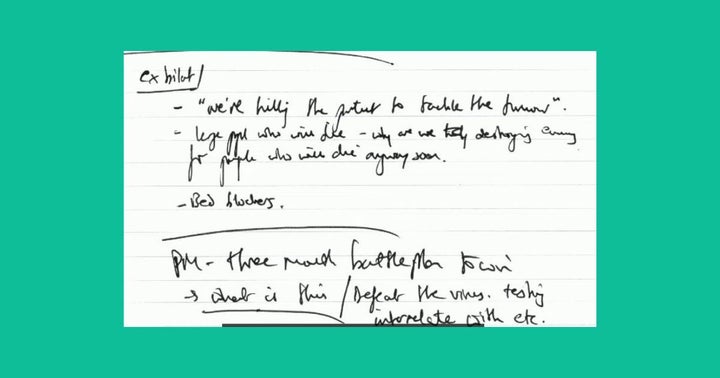 ex bilat/
- "we're killing the patient to tackle the tumour".
- Large ppl who will die - why are we destroying economy
for people who will die anyway soon.
- Bed blockers.
PM - three month battleplan to win
→ what is this / Defeat the virus. testing
interrelate with etc.